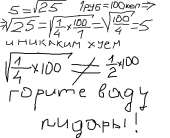 5=√25 1руб=100коп⇒
⇒√25=√(1/4×100/1)=√(100/4)=5
и никаким хуем
√(1/4×100)≠1/2×100
горите ваду
пидары!